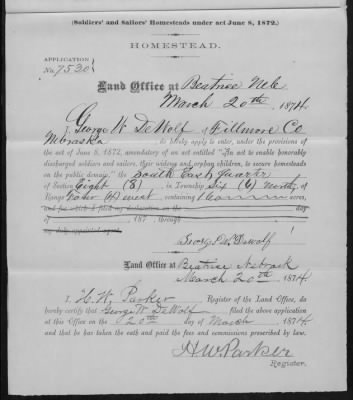 (Soldiers' and Sailors' Homesteads under act June 8, 1872.)
HOMESTEAD.
APPLICATION
No. 7530
Land Office at Beatrice Neb
March 20th, 1874.
I, George W DeWolf of Fillmore Co
Nebraska, do hereby apply to enter, under the provisions of
the act of June 8, 1872, amendatory of an act entitled "An act to enable honorably
discharged soldiers and sailors, their widows and orphan children, to secure homesteads
on the public domain," the South East quarter
of Section Eight (8), in Township Six (6) North, of
Range Four (4) West, containing acres,
and for which I filed my declaration on the day
of , 187 , through
my duly appointed agent
George W. DeWolf
Land Office at Beatrice Nebrask
March 20th 1874.
I, H. W. Parker, Register of the Land Office, do
hereby certify that George W DeWolf filed the above application
at this Office on the 20th day of March, 1874,
and that he has taken the oath and paid the fees and commissions prescribed by law.
H W Parker
Register.